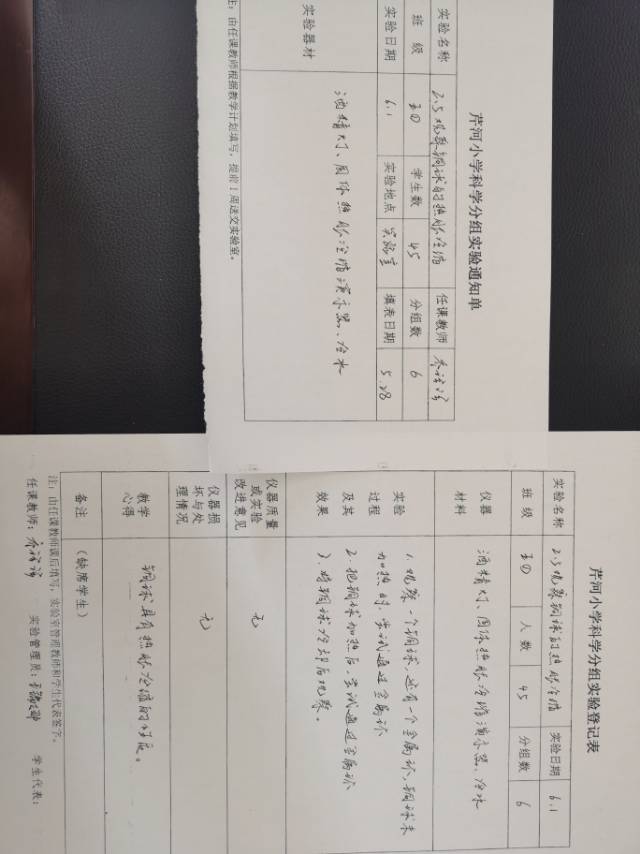 芹河小学科学分组实验通知单
实验名称 2.5观察铜球的热胀冷缩 任课教师
班级 三① 学生数 45 分组数 6
实验日期 6.1 实验地点 实验室 填表日期 5.28
实验器材 酒精灯、固体热胀冷缩演示器、冷水
注：由任课教师根据教学计划填写，提前1周送交实验室。
芹河小学科学分组实验登记表
实验名称 2.5观察铜球的热胀冷缩 实验日期 6.1
班级 三① 人数 45 分组数 6
仪器材料 酒精灯、固体热胀冷缩演示器、冷水
实验过程及其效果
1.观察一个铜球,还有一个金属环,铜球未
加热时,尝试通过金属环
2.把铜球加热后,尝试通过金属环
3.将铜球冷却后观察。
仪器质量或实验改进意见 无
仪器损坏与处理情况 无
教学心得 铜球具有热胀冷缩的性质。
备注 (缺席学生)
注：由任课教师课后填写，实验室管理教师和学生代表签字。
任课教师： 实验管理员： 学生代表：